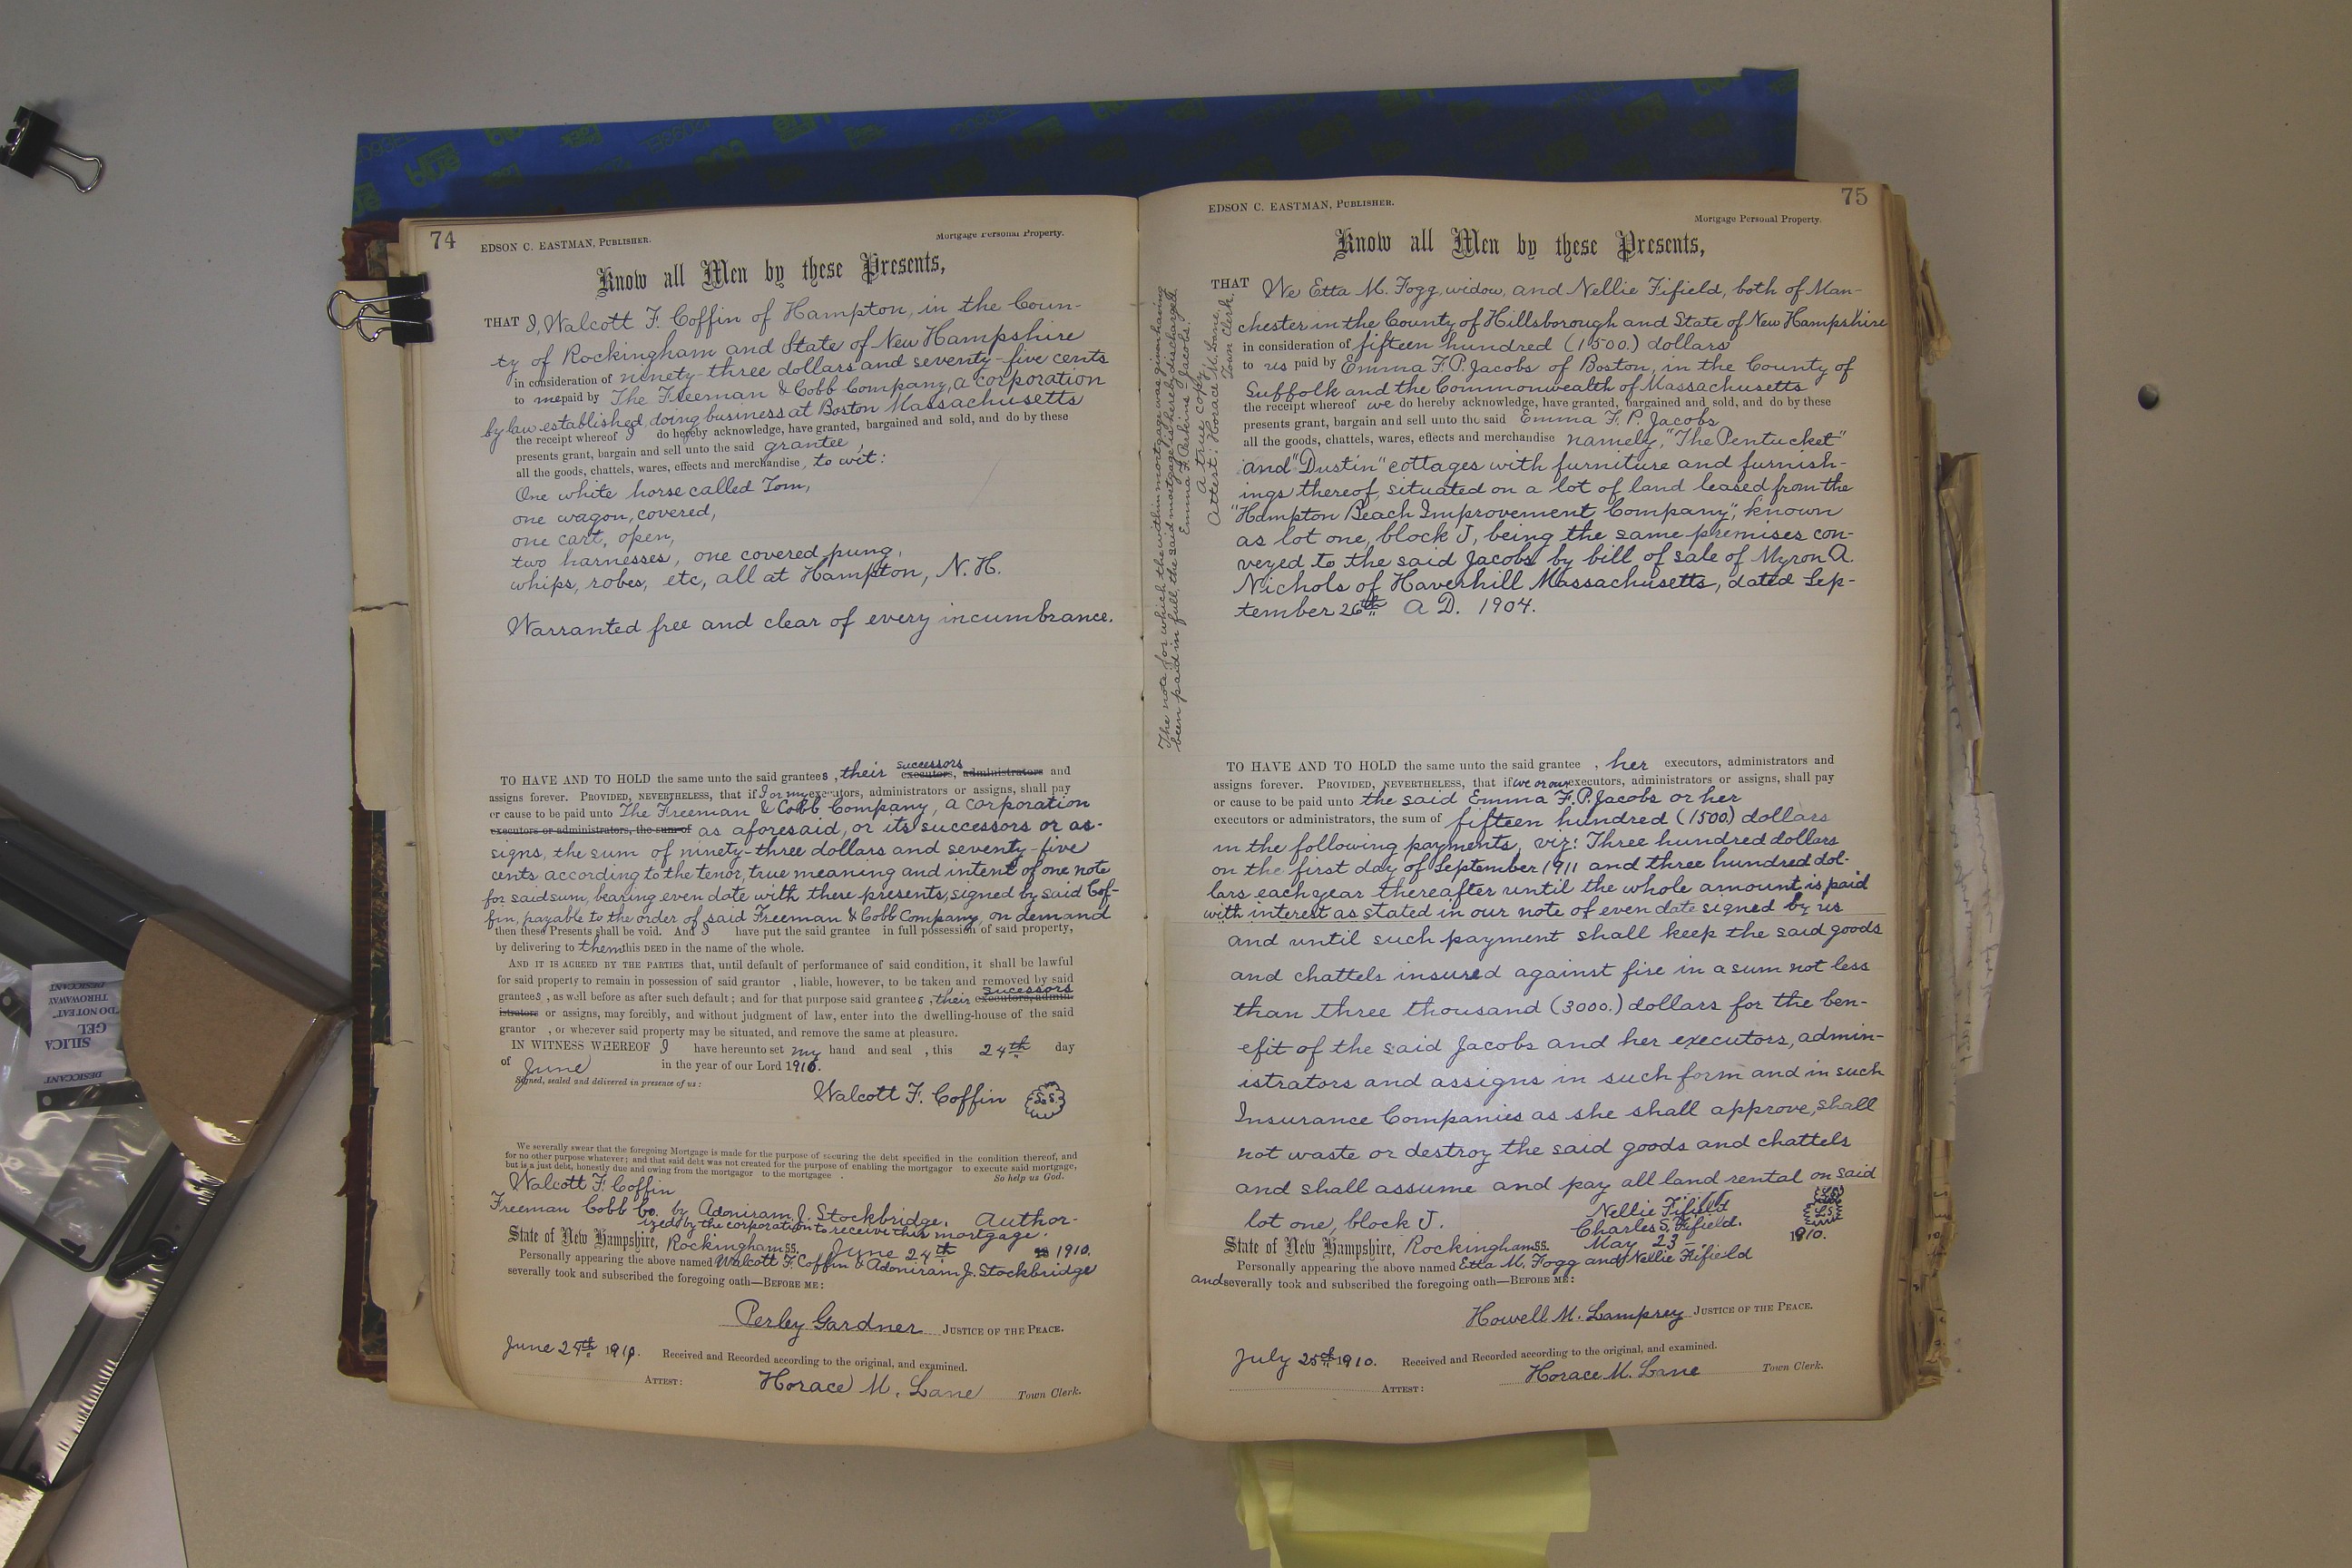 74
EDSON C. EASTMAN, PUBLISHER.
Mortgage Personal Property.
Know all Men by these Presents,
THAT I, Walcott F. Coffin of Hampton, in the Coun-
ty of Rockingham and State of New Hampshire
in consideration of ninety-three dollars and seventy-five cents
to me paid by The Freeman & Cobb Company, a corporation
by law established, doing business at Boston Massachusetts
the receipt whereof I do hereby acknowledge, have granted, bargained and sold, and do by these
presents grant, bargain and sell unto the said grantee,
all the goods, chattels, wares, effects and merchandise, to wit:
One white horse called Tom,
one wagon, covered,
one cart, open,
two harnesses, one covered pung,
whips, robes, etc, all at Hampton, N. H.
Warranted free and clear of every incumbrance.
TO HAVE AND TO HOLD the same unto the said grantees, their successors executors, administrators and
assigns forever. PROVIDED, NEVERTHELESS, that if I or my executors, administrators or assigns, shall pay
or cause to be paid unto The Freeman & Cobb Company, a corporation
executors or administrators, the sum of as aforesaid, or its successors or as-
signs, the sum of ninety-three dollars and seventy-five
cents according to the tenor, true meaning and intent of one note
for said sum, bearing even date with these presents, signed by said Cof-
fin, payable to the order of said Freeman & Cobb Company, on demand
then these Presents shall be void. And I have put the said grantee in full possession of said property,
by delivering to them this DEED in the name of the whole.
AND IT IS AGREED BY THE PARTIES that, until default of performance of said condition, it shall be lawful
for said property to remain in possession of said grantor , liable, however, to be taken and removed by said
grantees, as well before as after such default; and for that purpose said grantees, their sucessors executors, admin-
istrators or assigns, may forcibly, and without judgment of law, enter into the dwelling-house of the said
grantor , or wherever said property may be situated, and remove the same at pleasure.
IN WITNESS WHEREOF I have hereunto set my hand and seal , this 24th day
of June in the year of our Lord 1910.
Signed, sealed and delivered in presence of us:
Walcott F. Coffin L.S.
We severally swear that the foregoing Mortgage is made for the purpose of securing the debt specified in the condition thereof, and
for no other purpose whatever; and that said debt was not created for the purpose of enabling the mortgagor to execute said mortgage,
but is a just debt, honestly due and owing from the mortgagor to the mortgagee . So help us God.
Walcott F. Coffin
Freeman Cobb Co. by Adoniram J. Stockbridge. Author-
ized by the corporation to receive this mortgage.
State of New Hampshire, Rockingham ss. June 24th 1910.
Personally appearing the above named Walcott F. Coffin & Adoniram J. Stockbridge
severally took and subscribed the foregoing oath—BEFORE ME:
Perley Gardner JUSTICE OF THE PEACE.
June 27th 1910. Received and Recorded according to the original, and examined.
ATTEST: Horace M. Lane Town Clerk.
75
EDSON C. EASTMAN, PUBLISHER.
Mortgage Personal Property.
Know all Men by these Presents,
The note for which the within mortgage was given having
been paid in full, the said mortgage is hereby discharged.
Emma F. Perkins Jacobs.
A true copy
Attest: Horace M. Lane,
Town Clerk.
THAT We Etta M. Fogg, widow, and Nellie Fifield, both of Man-
chester in the County of Hillsborough and State of New Hampshire
in consideration of fifteen hundred (1500.) dollars
to us paid by Emma F. P. Jacobs of Boston, in the County of
Suffolk and the Commonwealth of Massachusetts
the receipt whereof we do hereby acknowledge, have granted, bargained and sold, and do by these
presents grant, bargain and sell unto the said Emma F. P. Jacobs
all the goods, chattels, wares, effects and merchandise namely, "The Pentucket"
and "Dustin" cottages with furniture and furnish-
ings thereof, situated on a lot of land leased from the
"Hampton Beach Improvement Company", known
as lot one, block J, being the same premises con-
veyed to the said Jacobs by bill of sale of Myron A.
Nichols of Haverhill Massachusetts, dated Sep-
tember 26th A D. 1904.
TO HAVE AND TO HOLD the same unto the said grantee , her executors, administrators and
assigns forever. PROVIDED, NEVERTHELESS, that if we or our executors, administrators or assigns, shall pay
or cause to be paid unto the said Emma F. P. Jacobs or her
executors or administrators, the sum of fifteen hundred (1500.) dollars
in the following payments, viz: Three hundred dollars
on the first day of September 1911 and three hundred dol-
lars each year thereafter until the whole amount is paid
with interest as stated in our note of even date signed by us
and until such payment shall keep the said goods
and chattels insured against fire in a sum not less
than three thousand (3000.) dollars for the ben-
efit of the said Jacobs and her executors, admin-
istrators and assigns in such form and in such
Insurance Companies as she shall approve, shall
not waste or destroy the said goods and chattels
and shall assume and pay all land rental on said
lot one, block J.
Nellie Fifield L.S.
Charles S. Fifield. L.S.
State of New Hampshire, Rockingham ss. May 23 1910.
Personally appearing the above named Etta M. Fogg and Nellie Fifield
and severally took and subscribed the foregoing oath—BEFORE ME:
Howell M. Lamprey JUSTICE OF THE PEACE.
July 25th 1910. Received and Recorded according to the original, and examined.
ATTEST: Horace M. Lane Town Clerk.
DESICCANT
SILICA
GEL
"DO NOT EAT"
THROWAWAY
DESICCANT